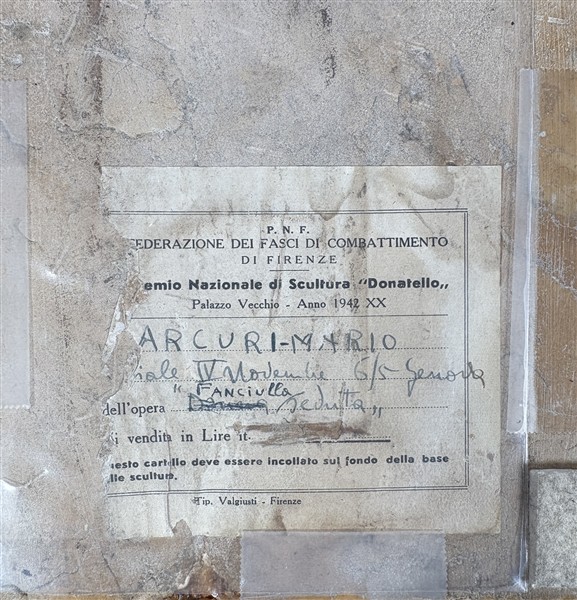 P. N. F.
FEDERAZIONE DEI FASCI DI COMBATTIMENTO
DI FIRENZE
emio Nazionale di Scultura "Donatello„
Palazzo Vecchio - Anno 1942 XX
ARCURI-MARIO
iale IV Novembre 6/5 Genova
"FANCIULLA
dell'opera Seduta„
i vendita in Lire it.
uesto cartello deve essere incollato sul fondo della base
lle sculture.
Tip. Valgiusti - Firenze